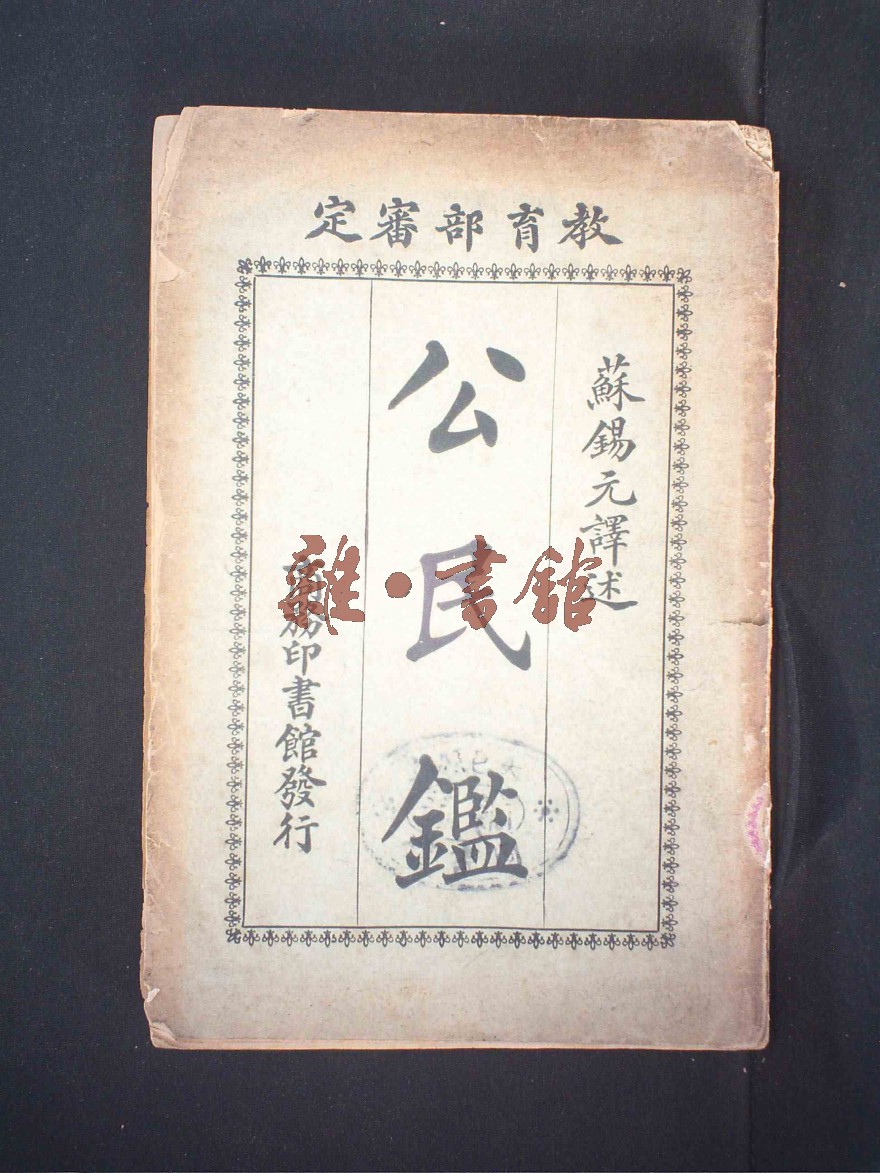 教育部審定
蘇錫元譯述
公民鑑
商務印書館發行
雜·書館